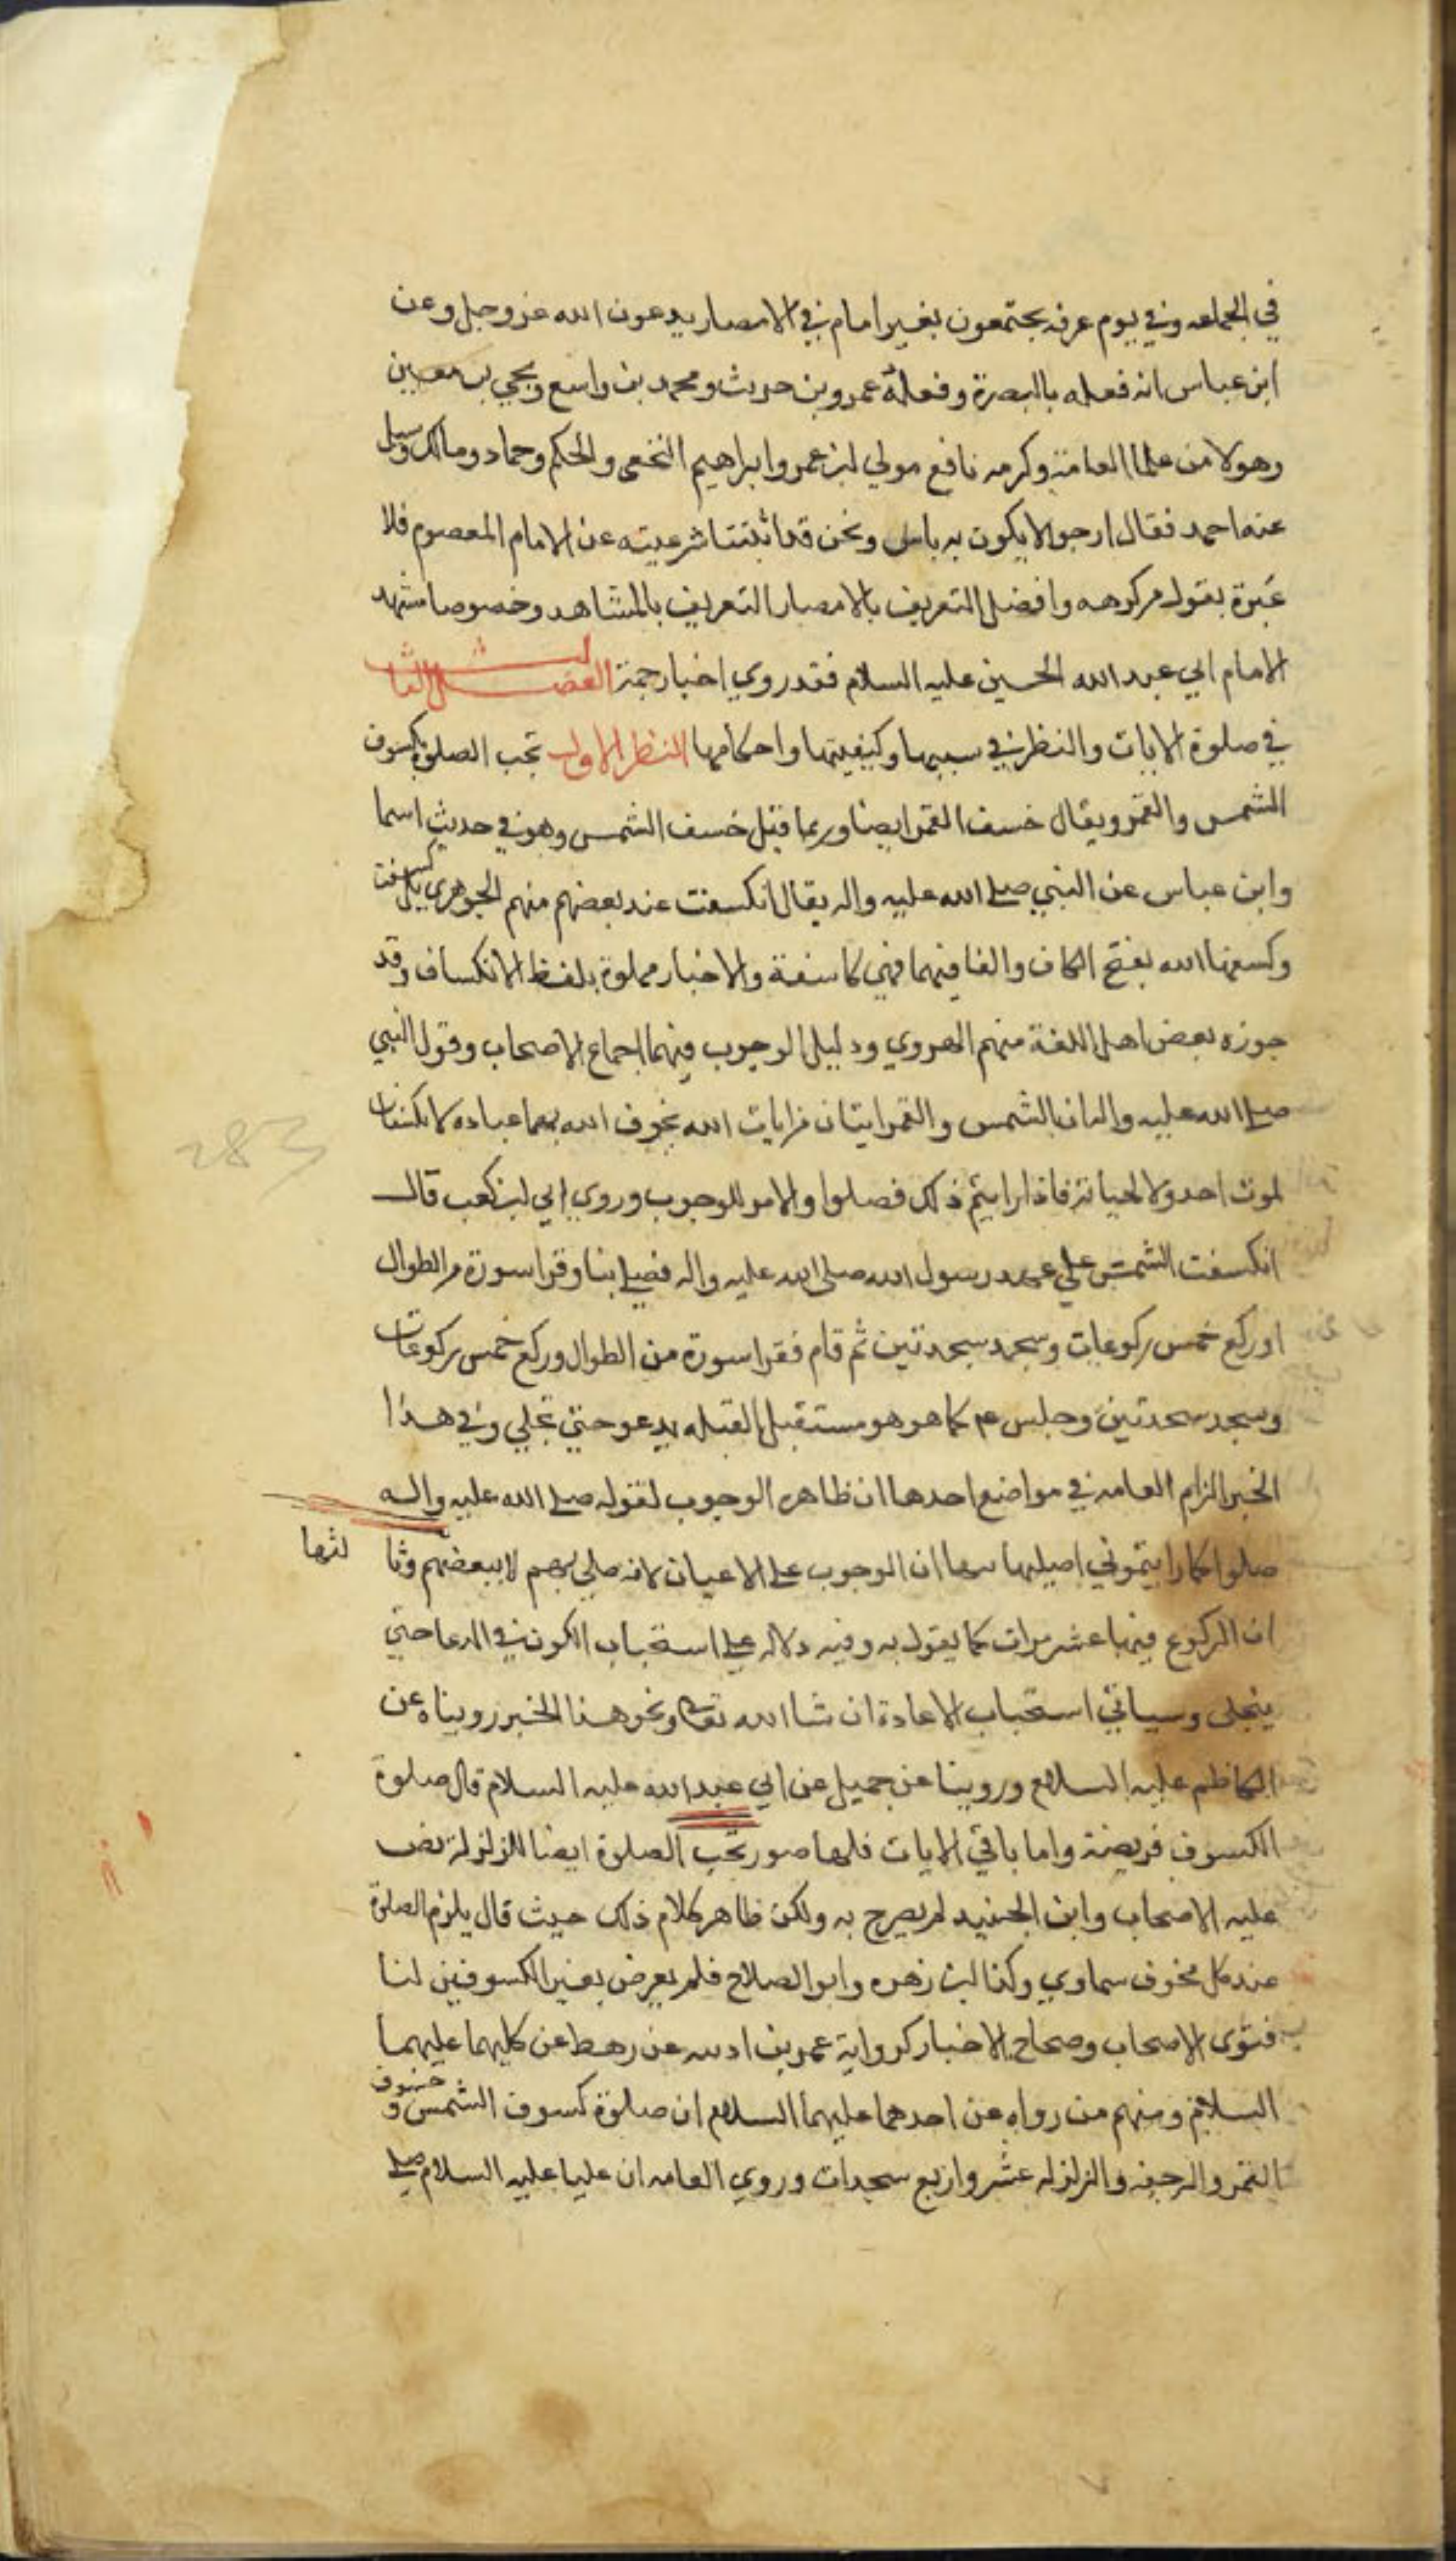 في الجماعه وفي يوم عرفه يجتمعون بغير امام في الامصار يدعون الله عز وجل وعن
ابن عباس انه فعله بالبصرة وفعله عمرو بن حريث ومحمد بن واسع ويحيى بن معين
وهولا من علما العامة وكرهه نافع مولي ابن عمر وابراهيم النخعي والحكم وحماد ومالك وسيل
عنه احمد فقال ارجو لا يكون به باس ونحن قد اثبتنا شرعيته عن الامام المعصوم فلا
عبرة بقول من كرهه وافضل التعريف بالامصار التعريف بالمشاهد وخصوصا مشهد
الامام ابي عبد الله الحسين عليه السلام فقد روي اخبار جمة الفصل الثالث
في صلوة الايات والنظر في سببها وكيفيتها واحكامها النظر الاول تجب الصلوة بكسوف
الشمس والقمر ويقال خسف القمر ايضا وربما قيل خسف الشمس وهو في حديث اسما
وابن عباس عن النبي صلى الله عليه واله يقال انكسفت عند بعضهم منهم الجوهري بل كسفت
وكسفها الله بفتح الكاف والفا فيهما فهي كاسفة والاخبار مملوة بلفظ الانكساف وقد
جوزه بعض اهل اللغة منهم الهروي ودليل الوجوب فيهما اجماع الاصحاب وقول النبي
صلى الله عليه واله ان الشمس والقمر ايتان من ايات الله يخوف الله بهما عباده لا يكسفان
لموت احد ولا لحياته فاذا رايتم ذلك فصلوا والامر للوجوب وروي ابي بن كعب قال
انكسفت الشمس علي عهد رسول الله صلى الله عليه واله فصلى بنا وقرا سورة من الطوال
وركع خمس ركوعات وسجد سجدتين ثم قام فقرا سورة من الطوال وركع خمس ركوعات
وسجد سجدتين وجلس عم كما هو هو مستقبل القبله يدعو حتي تجلي وفي هذا
الخبر الزام العامه في مواضع احدها ان ظاهره الوجوب لقوله صلى الله عليه واله
صلوا كما رايتموني اصلي ان الوجوب على الاعيان لانه صلي بهم لا ببعضهم وثا لثها
ان الركوع فيها عشر مرات كما يقول به وفيه دلاله على استحباب الكون في الدعا حتي
ينجلي وسياتي استحباب الاعادة ان شا الله تعالى ونحو هذا الخبر رويناه عن
الكاظم عليه السلام وروينا عن جميل عن ابي عبد الله عليه السلام قال صلوة
الكسوف فريضة واما باقي الايات فلها صور تجب الصلوة ايضا للزلزلة نص
عليه الاصحاب وابن الجنيد لم يصرح به ولكن ظاهر كلام ذلك حيث قال يلزم الصلوة
عند كل مخوف سماوي وكذا ابن زهره وابو الصلاح فلم يعرض بغير الكسوفين لنا
فتوى الاصحاب وصحاح الاخبار كرواية عمر بن اذينه عن رهط عن كليهما عليهما
السلام ومنهم من رواه عن احدهما عليهما السلام ان صلوة كسوف الشمس وخسوف
القمر والرجفه والزلزله عشر واربع سجدات وروي العامه ان عليا عليه السلام صلى